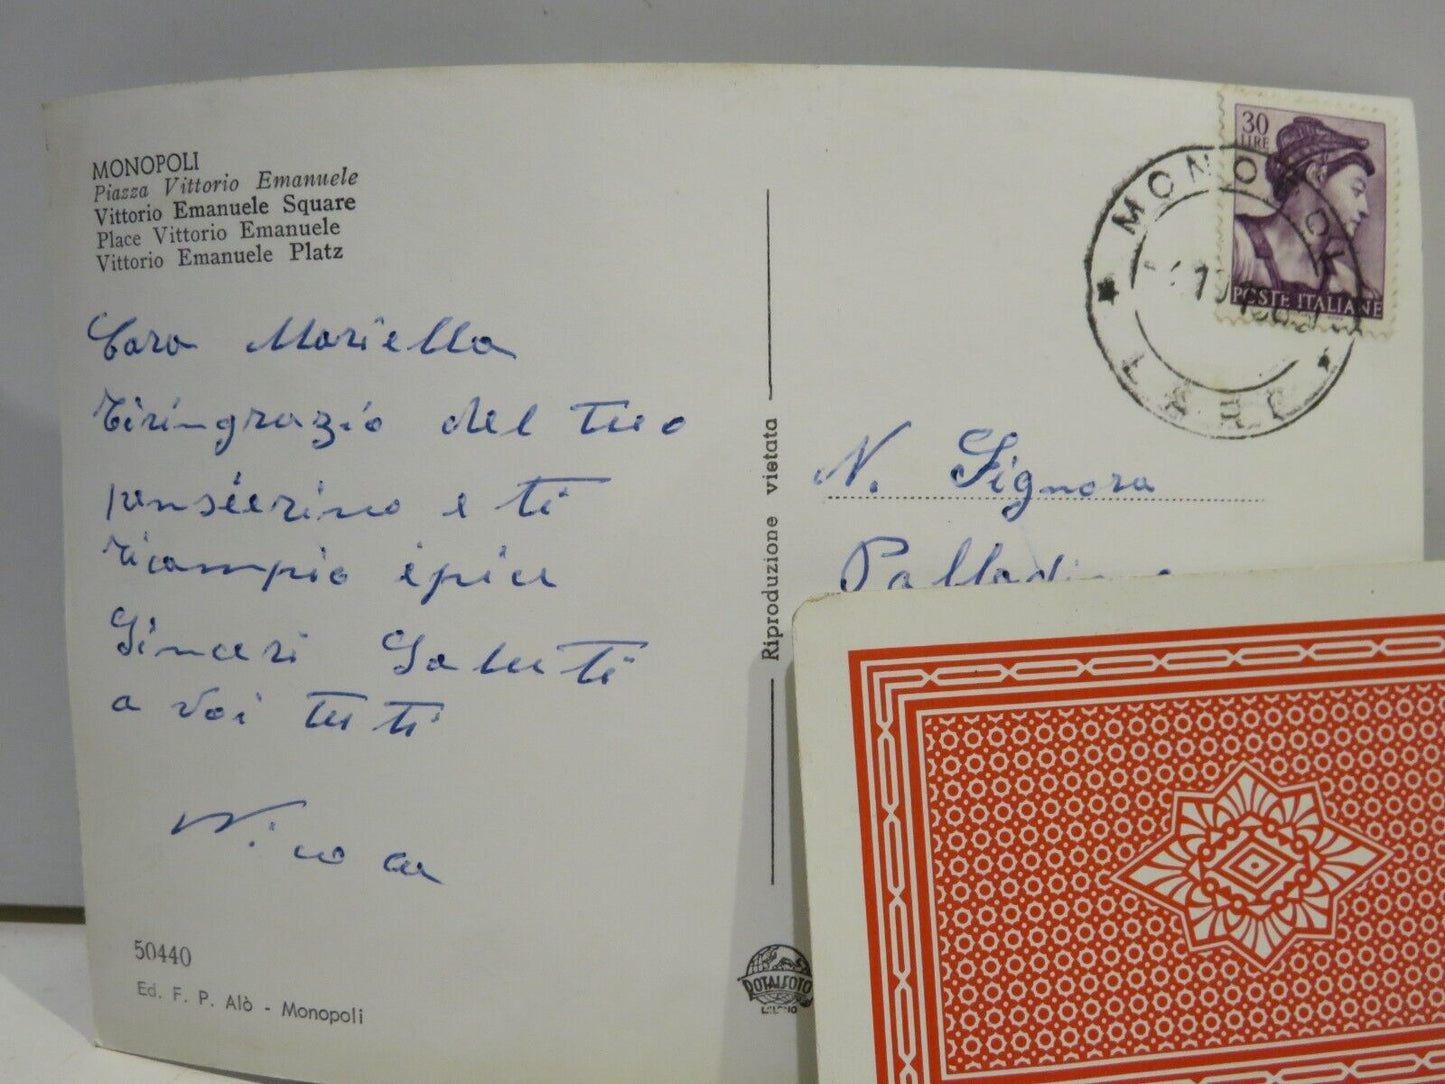 MONOPOLI
Piazza Vittorio Emanuele
Vittorio Emanuele Square
Place Vittorio Emanuele
Vittorio Emanuele Platz
Cara Mariella
tiringrazio del tuo
pensierino e ti
ricampio ipiu
Sinceri Saluti
a voi tuti
50440
Ed. F. P. Alò - Monopoli
Riproduzione vietata
ROTALFOTO
MILANO
30
LIRE
POSTE ITALIANE
MONOPOLI
BARI
N. Signora